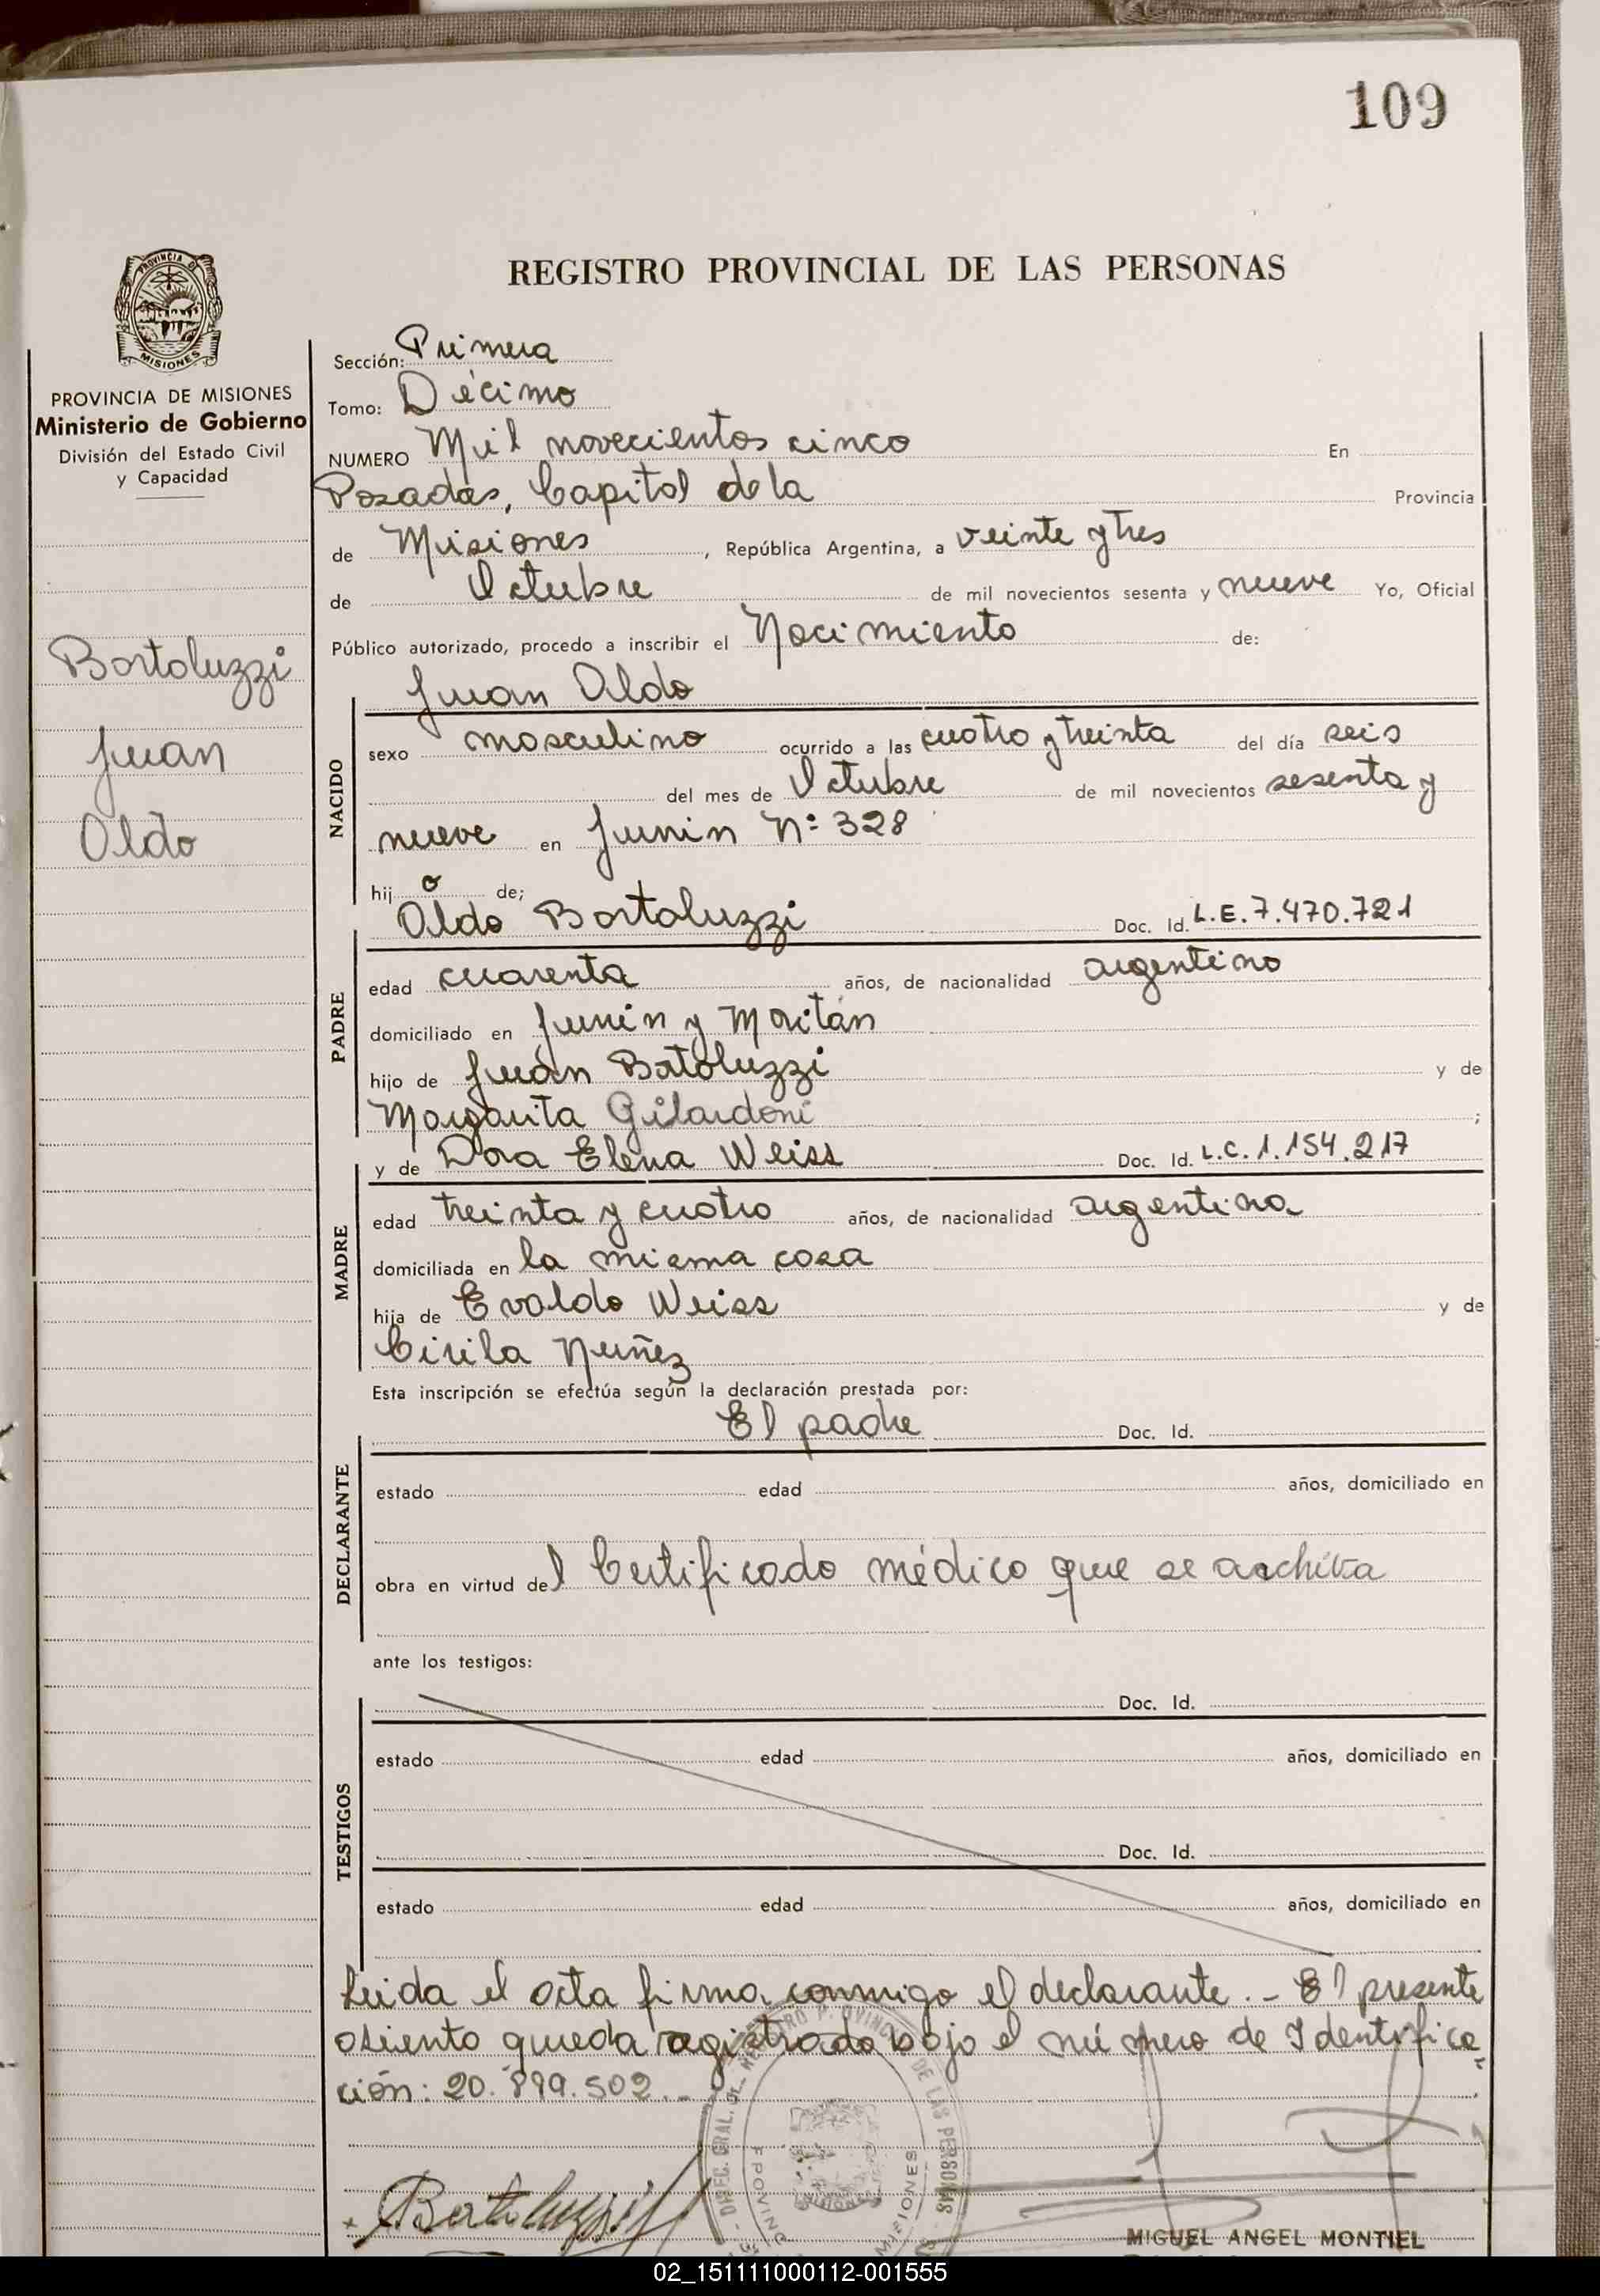 109
PROVINCIA DE
MISIONES
REGISTRO PROVINCIAL DE LAS PERSONAS
PROVINCIA DE MISIONES
Ministerio de Gobierno
División del Estado Civil
y Capacidad
Bortoluzzi
Juan
Aldo
Sección: Primera
Tomo: Décimo
NUMERO Mil novecientos cinco En
Posadas, Capital de la Provincia
de Misiones, República Argentina, a veinte y tres
de Octubre de mil novecientos sesenta y nueve Yo, Oficial
Público autorizado, procedo a inscribir el Nacimiento de:
Juan Aldo
NACIDO
sexo masculino ocurrido a las cuatro y treinta del día seis
del mes de Octubre de mil novecientos sesenta y
nueve en Junin Nº 328
hijo de;
Aldo Bortoluzzi Doc. Id. L.E. 7.470.721
PADRE
edad cuarenta años, de nacionalidad argentino
domiciliado en Junin y Moritán
hijo de Juan Bortoluzzi y de
Margarita Gilardoni ;
y de Dora Elena Weiss Doc. Id. L.C. 1.154.217
MADRE
edad treinta y cuatro años, de nacionalidad argentina
domiciliada en la misma casa
hija de Evaldo Weiss y de
Cirila Nuñez
Esta inscripción se efectúa según la declaración prestada por:
El padre Doc. Id.
DECLARANTE
estado edad años, domiciliado en
obra en virtud del Certificado médico que se archiva
ante los testigos:
Doc. Id.
TESTIGOS
estado edad años, domiciliado en
Doc. Id.
estado edad años, domiciliado en
Leida el acta firma conmigo el declarante.- El presente
asiento queda registrado bajo el número de Identifica
ción: 20.899.502.-
DIREC. GRAL. DEL REGISTRO PROVINCIAL DE LAS PERSONAS
MISIONES
Bortoluzzi
MIGUEL ANGEL MONTIEL
02_151111000112-001555